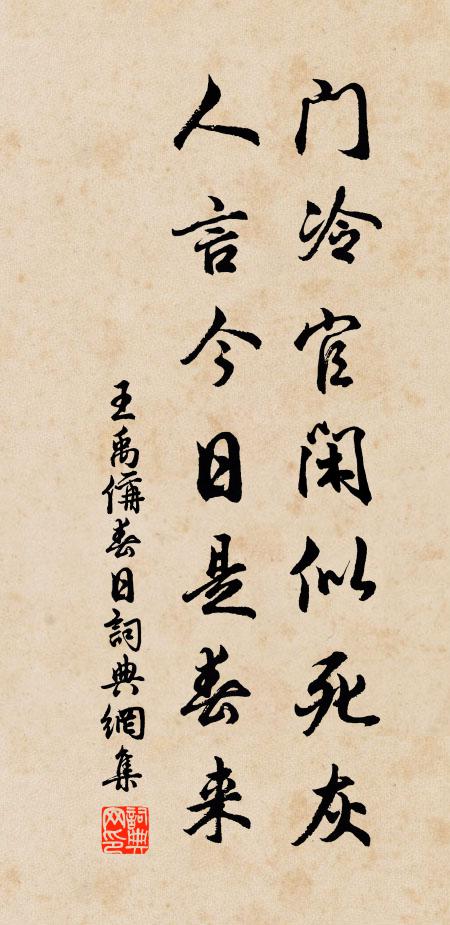 门冷官闲似死灰
人言今日是春来
王禹偁春日詞典網集
詞典网印